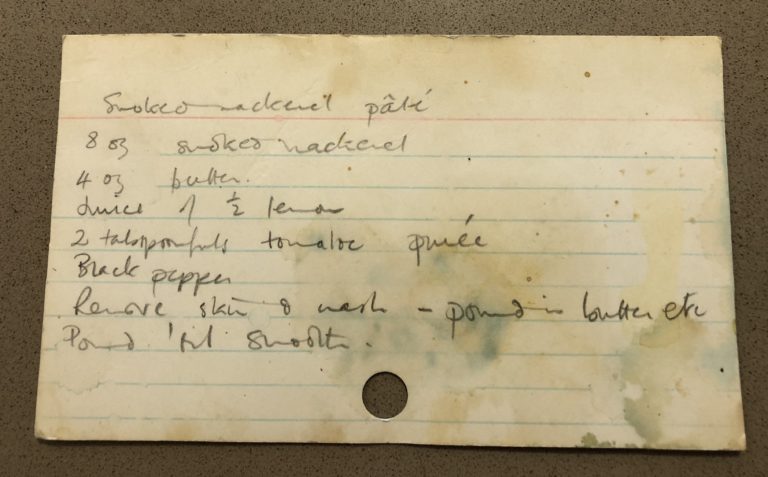 Smoked mackerel pâté
8 oz smoked mackerel
4 oz butter.
Juice of ½ lemon
2 tablespoonfuls tomatoe purée
Black pepper
Remove skin & mash - pound in butter etc
Pound 'til smooth.